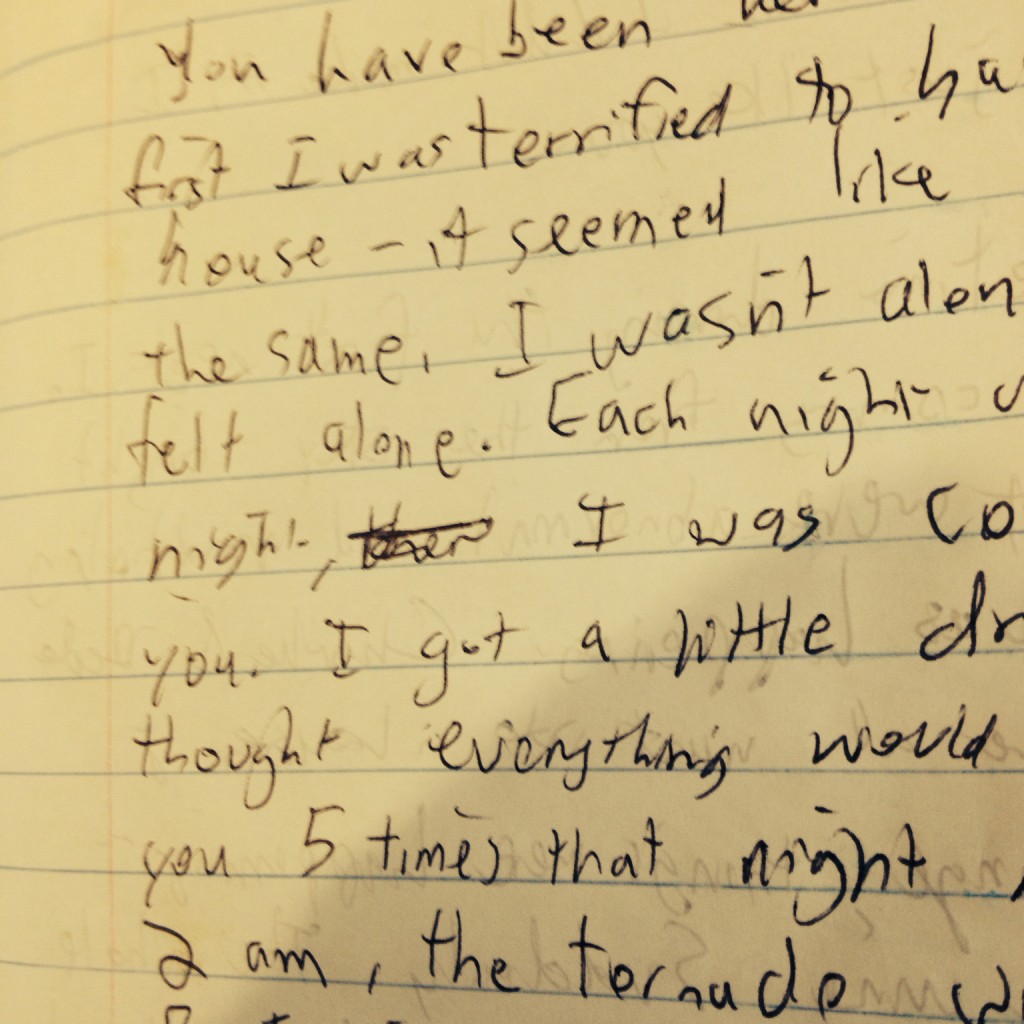 You have been
first I was terrified to ha
house - it seemed like
the same. I wasn't alon
felt alone. Each night
night, I was co
you. I got a little dr
thought everything would
you 5 times that night
2 am, the tornado w